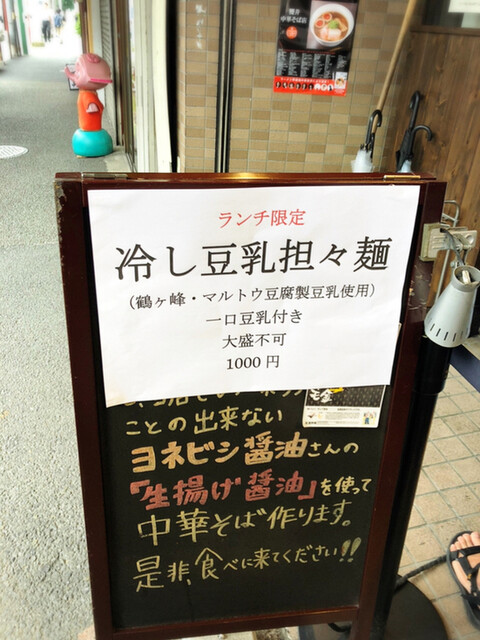 櫻井
中華そば店
ランチ限定
冷し豆乳担々麺
（鶴ヶ峰・マルトウ豆腐製豆乳使用）
一口豆乳付き
大盛不可
1000円
ことの出来ない
ヨネビシ醤油さんの
「生揚げ醤油」を使って
中華そば作ります。
是非、食べに来てください!!